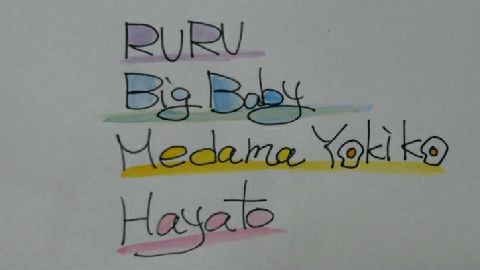 RURU
Big Baby
Medama Yokiko
Hayato